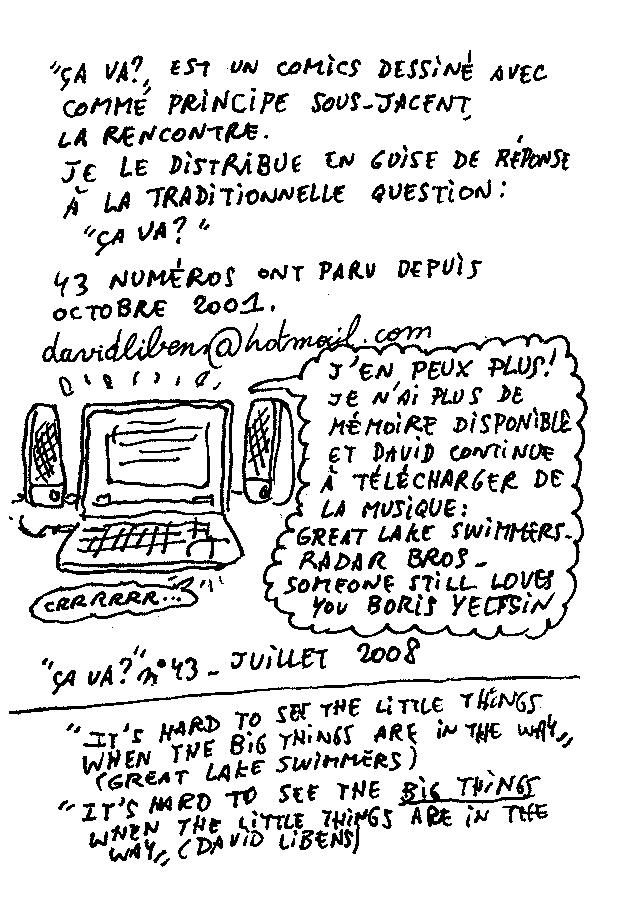 "ÇA VA?„ EST UN COMICS DESSINÉ AVEC
COMME PRINCIPE SOUS-JACENT,
LA RENCONTRE.
JE LE DISTRIBUE EN GUISE DE RÉPONSE
À LA TRADITIONNELLE QUESTION:
"ÇA VA?"
43 NUMÉROS ONT PARU DEPUIS
OCTOBRE 2001.
davidlibens@hotmail.com
J'EN PEUX PLUS!
JE N'AI PLUS DE
MÉMOIRE DISPONIBLE
ET DAVID CONTINUE
À TÉLÉCHARGER DE
LA MUSIQUE:
GREAT LAKE SWIMMERS-
RADAR BROS-
SOMEONE STILL LOVES
YOU BORIS YELTSIN
CRRRRRR...
"ÇA VA?" n°43 - JUILLET 2008
"IT'S HARD TO SEE THE LITTLE THINGS
WHEN THE BIG THINGS ARE IN THE WAY„
(GREAT LAKE SWIMMERS)
"IT'S HARD TO SEE THE BIG THINGS
WHEN THE LITTLE THINGS ARE IN THE
WAY„ (DAVID LIBENS)